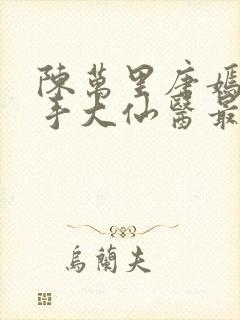 陳萬里唐嫣
手大仙醫最
烏蘭夫